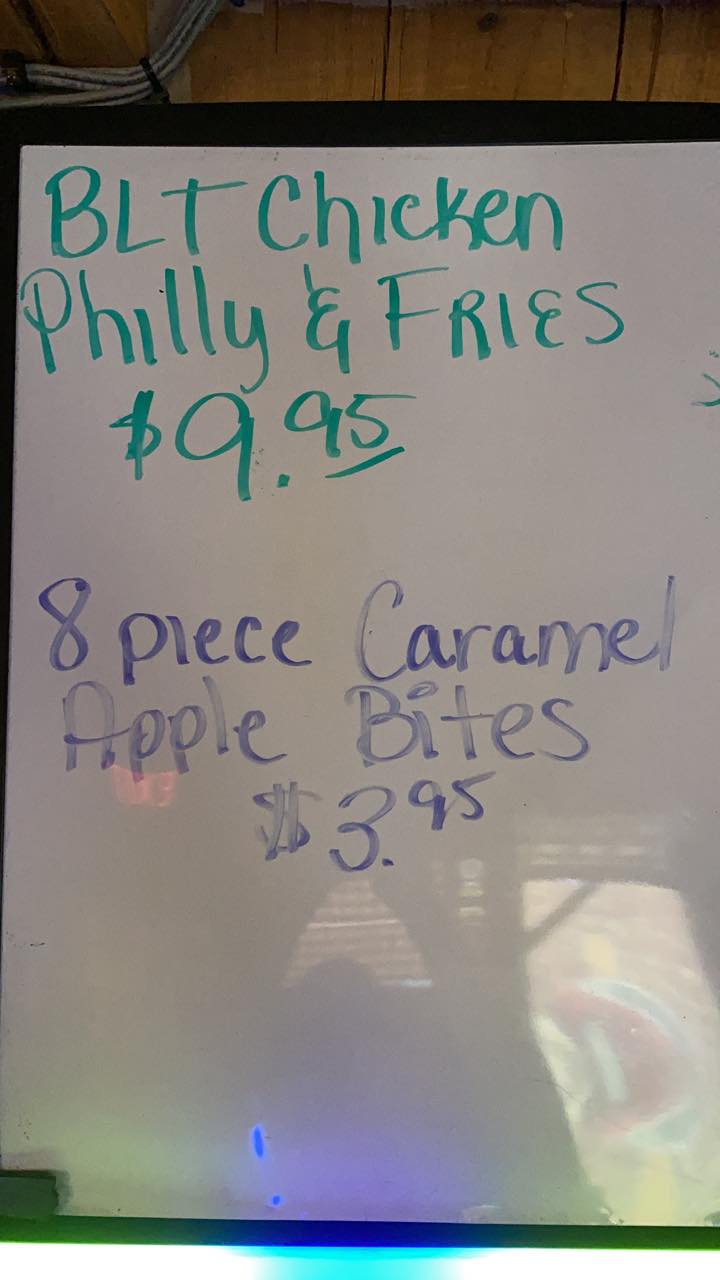 BLT Chicken
Philly & FRIES
$9.95
8 piece Caramel
Apple Bites
$3.95